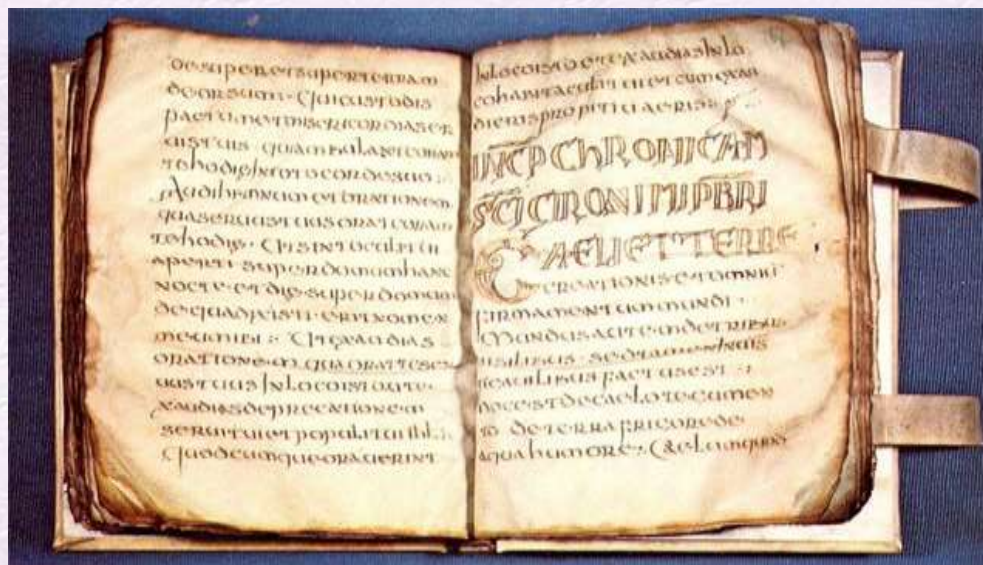 desuper et super terram
deorsum · Qui custodis
pactum et misericordias er
uis tuis · qui ambulant coram
te hodie in toto corde suo :
Audi hymnum et orationem
quas eruus tuus orat coram
te hodie · Ut sint oculi tui
aperti super domum hanc
nocte et die super domum
de qua dixisti · erit nomen
meum ibi : Ut exaudias
orationem qua orat te ser
uus tuus in loco isto ut e
xaudias deprecationem
serui tui et populi tui ihl
quodcumque orauerint
in loco isto et exaudias in lo
co habitaculi tui et cum exau
dieris propitius eris
INCP CHRONICAM
SCI GIRONIMI PBRI
CAELI ET TERRE
creationis et omni
firmamentum mundi ·
Mundus
factus est
de caelo
de terra frigore de
aqua humore : Caelum